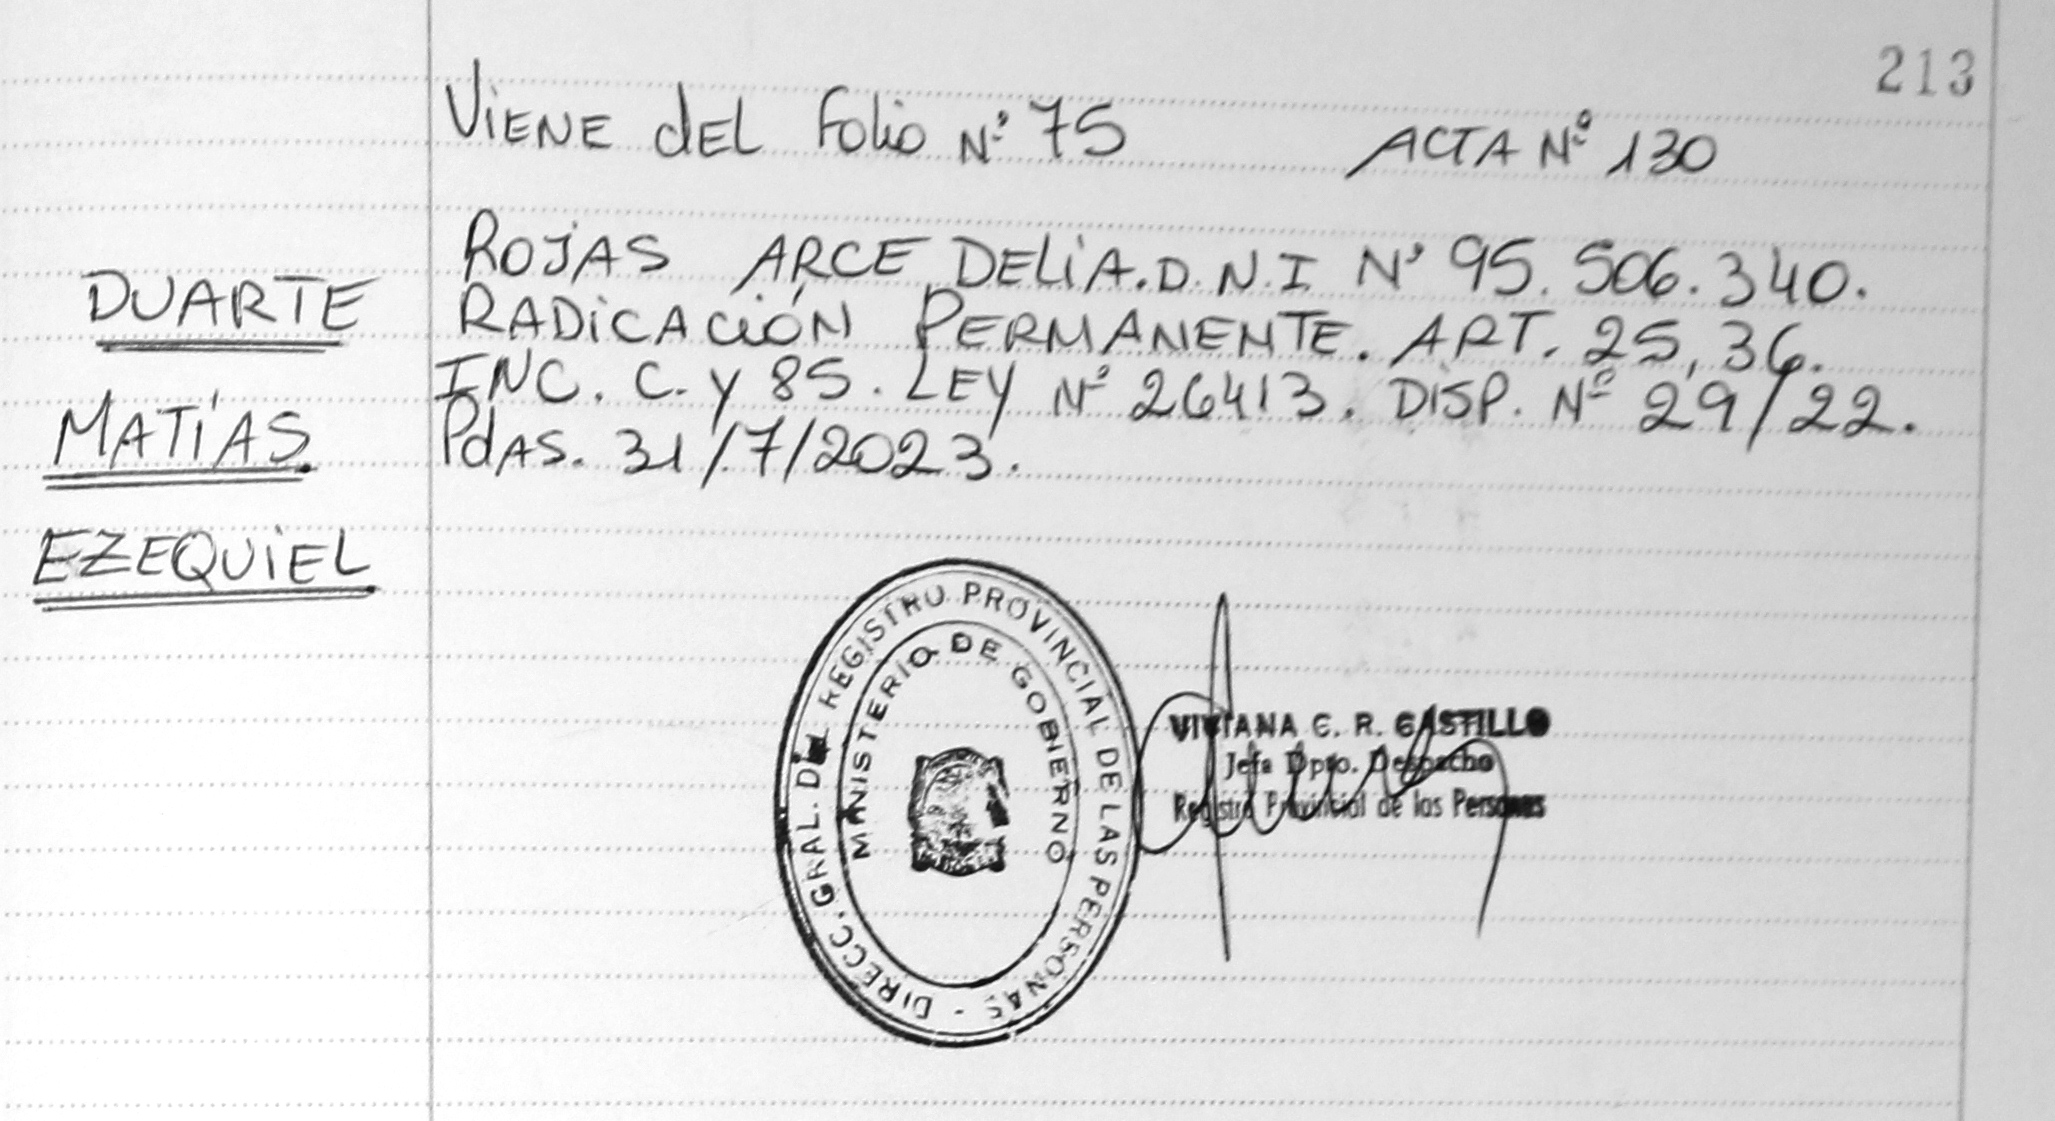 213
Viene del folio Nº 75 ACTA Nº 130
DUARTE
MATÍAS.
EZEQUIEL
ROJAS ARCE DELIA. D.N.I Nº 95.506.340.
RADICACIÓN PERMANENTE. ART. 25, 36.
INC. C. Y 85. LEY Nº 26413. DISP. Nº 29/22.
Pdas. 31/7/2023.
DIRECC. GRAL. DEL REGISTRO PROVINCIAL DE LAS PERSONAS -
MINISTERIO DE GOBIERNO
VIVIANA C. R. CASTILLO
Jefa Dpto. Despacho
Registro Provincial de las Personas